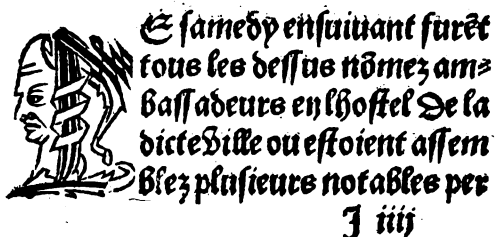 E samedy ensuiuant furẽt
tous les dessus nõmez am-
bassadeurs en lhostel De la
dicte Ville ou estoient assem
blez plusieurs notables per
J iiij